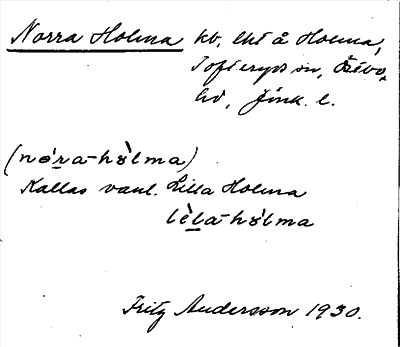 Norra Holma kv, lht å Holma,
Tofteryds sn, Östbo
hd, Jönk. l.
(nǿra-hɵ̀lma)
Kallas vanl. Lilla Holma
lèla-hɵ̀lma
Fritz Andersson 1930.